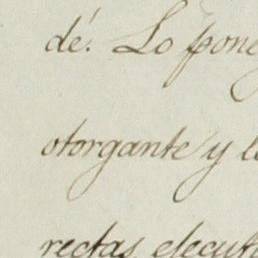 dé. Lo pone
otorgante y l
rectas, ejecut